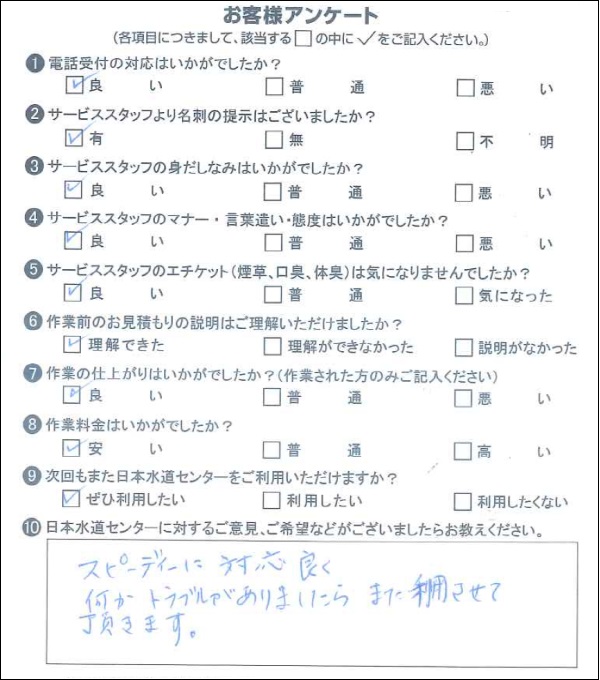 お客様アンケート
(各項目につきまして、該当する□の中に✓をご記入ください。)
❶電話受付の対応はいかがでしたか？
☑良い □普通 □悪い
❷サービススタッフより名刺の提示はございましたか？
☑有 □無 □不明
❸サービススタッフの身だしなみはいかがでしたか？
☑良い □普通 □悪い
❹サービススタッフのマナー・言葉遣い・態度はいかがでしたか？
☑良い □普通 □悪い
❺サービススタッフのエチケット(煙草、口臭、体臭)は気になりませんでしたか？
☑良い □普通 □気になった
❻作業前のお見積もりの説明はご理解いただけましたか？
☑理解できた □理解ができなかった □説明がなかった
❼作業の仕上がりはいかがでしたか？(作業された方のみご記入ください)
☑良い □普通 □悪い
❽作業料金はいかがでしたか？
☑安い □普通 □高い
❾次回もまた日本水道センターをご利用いただけますか？
☑ぜひ利用したい □利用したい □利用したくない
❿日本水道センターに対するご意見、ご希望などがございましたらお教えください。
スピーディーに 対応 良く
何か トラブルがありましたら また 利用させて
頂きます。